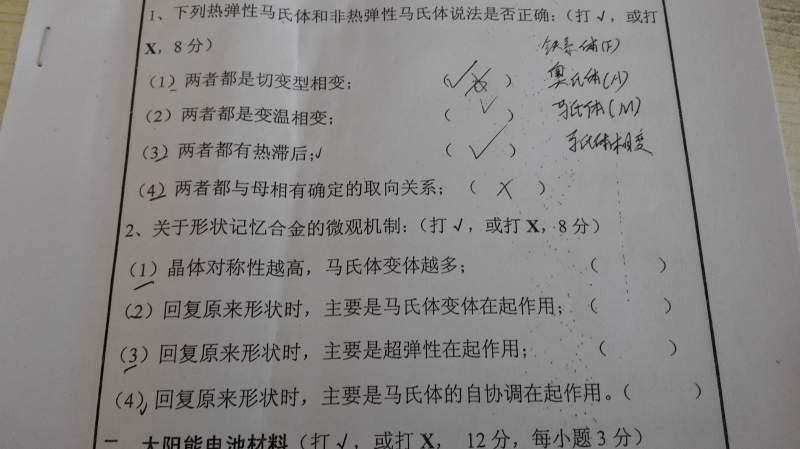 1、下列热弹性马氏体和非热弹性马氏体说法是否正确:(打√,或打
X,8分)
铁素体(F)
(1) 两者都是切变型相变; (√ )
奥氏体(A)
(2) 两者都是变温相变; ( √ )
马氏体(M)
(3) 两者都有热滞后;√ ( √ )
马氏体相变
(4) 两者都与母相有确定的取向关系; ( X )
2、关于形状记忆合金的微观机制:(打√,或打X,8分)
(1) 晶体对称性越高,马氏体变体越多; ( )
(2) 回复原来形状时,主要是马氏体变体在起作用; ( )
(3) 回复原来形状时,主要是超弹性在起作用; ( )
(4) 回复原来形状时,主要是马氏体的自协调在起作用。( )
太阳能电池材料(打√,或打X, 12分,每小题3分)